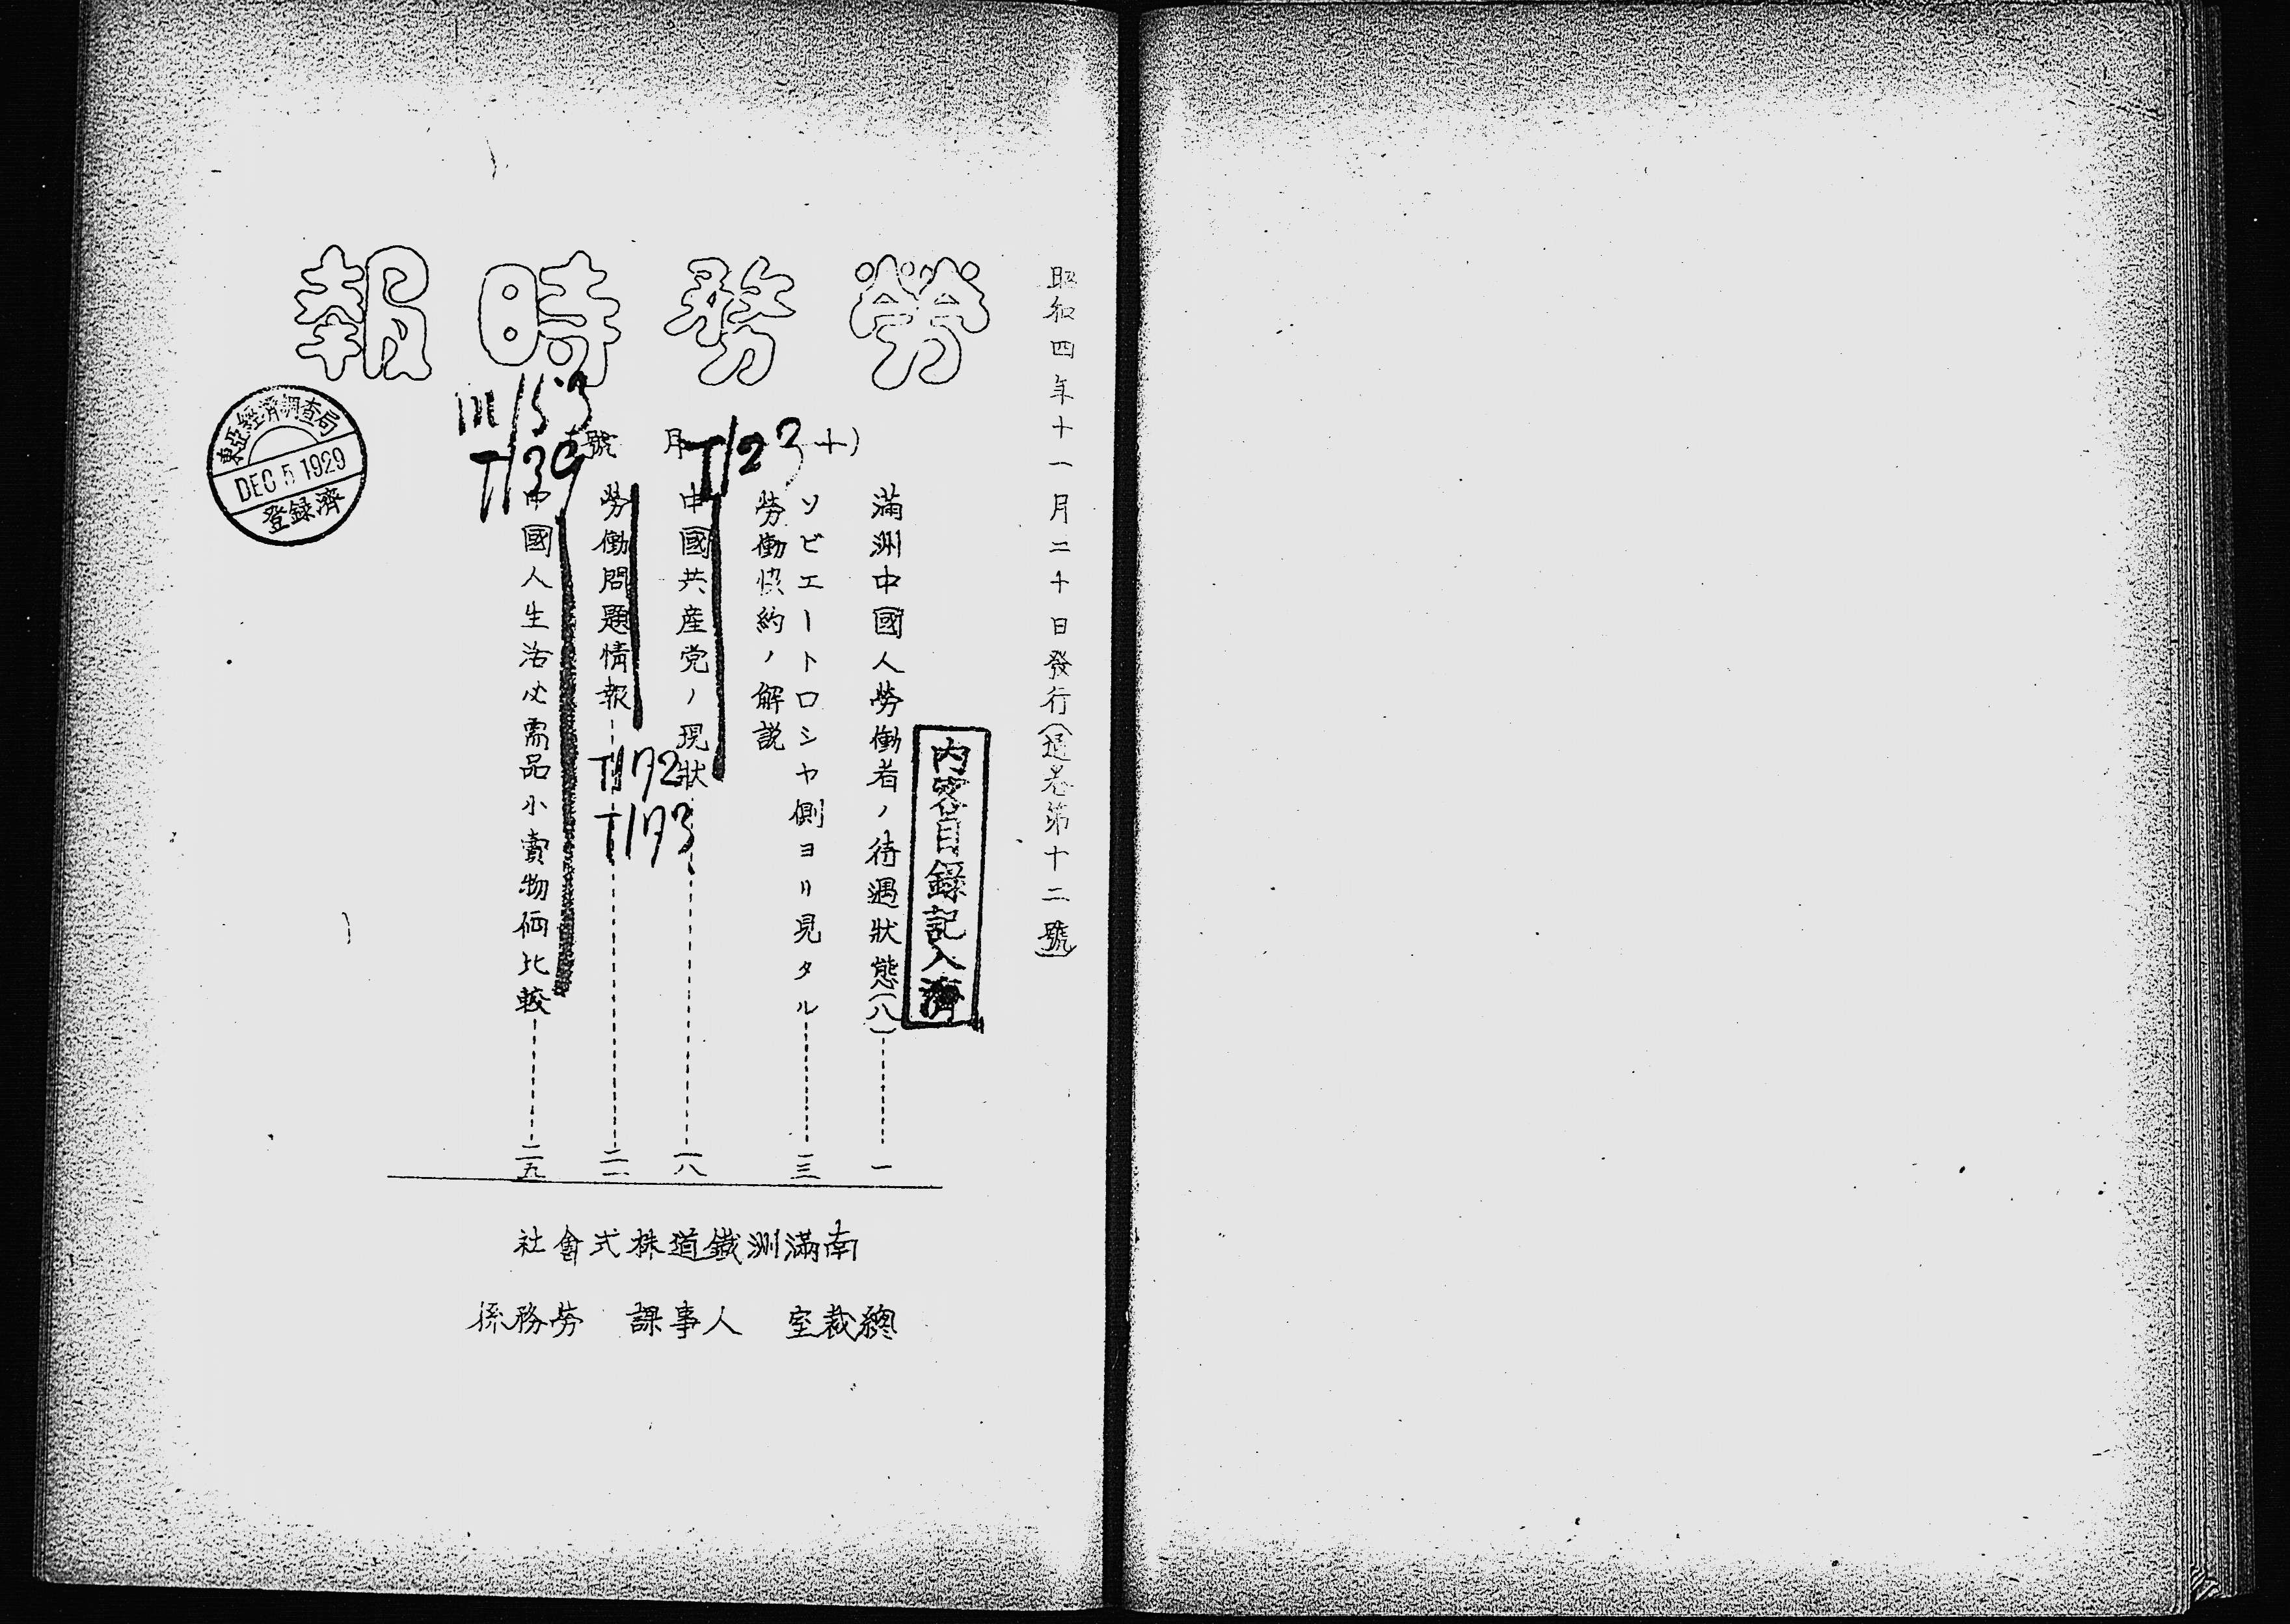 昭和四年十一月二十日發行(通巻第十二號)
勞務時報
(十 月 號
滿洲中國人勞働者ノ待遇狀態(八)……一
ソビエートロシヤ側ヨリ見タル……三
勞働 約ノ解説
中國共産党ノ現狀……一八
勞働問題情報……二一
中國人生活必需品小賣物価比較……二五
内容目録記入濟
T/23
III/53
T/39
T/172
T/173
東亞經濟調查局
DEC 5 1929
登録濟
南滿洲鐵道株式會社
總裁室 人事課 勞務係